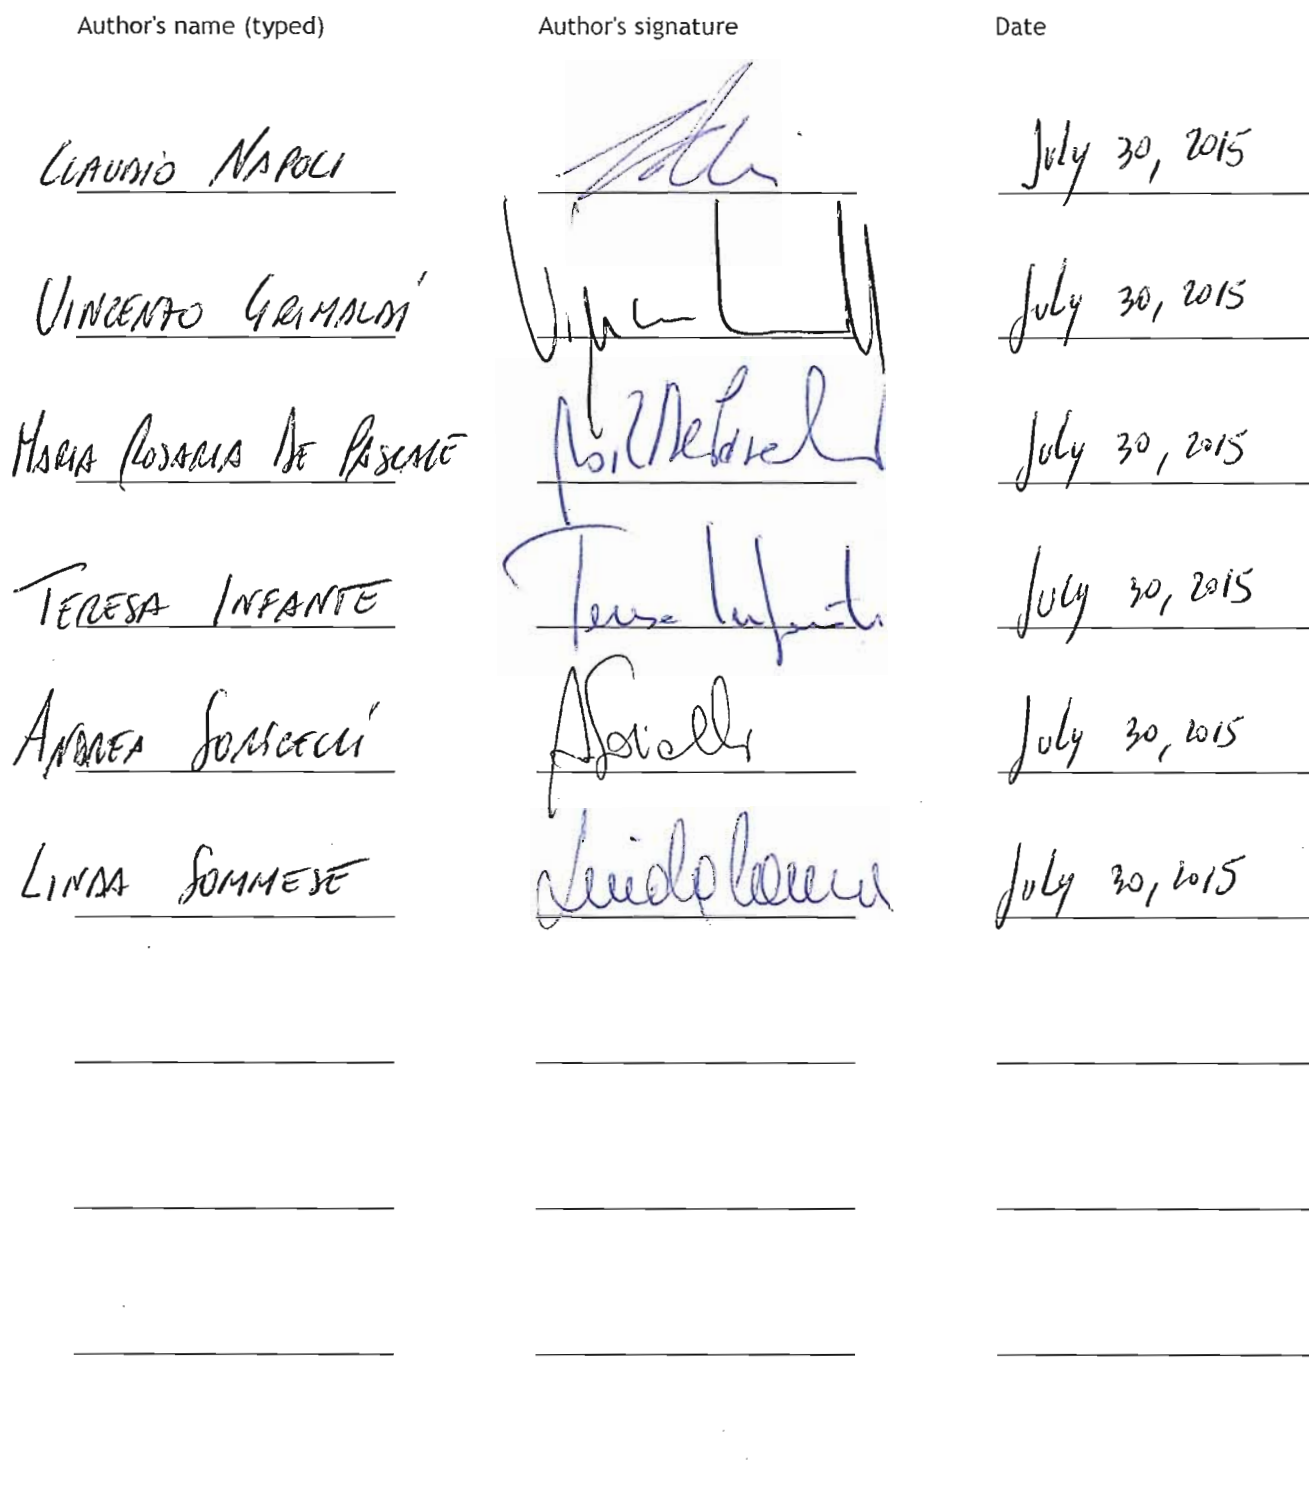 Author's name (typed) Author's signature Date
CLAUDIO NAPOLI July 30, 2015
VINCENZO GRIMALDI July 30, 2015
MARIA ROSARIA DE PASCALE July 30, 2015
TERESA INFANTE Teresa Infante July 30, 2015
ANDREA SORICELLI ASoricelli July 30, 2015
LINDA SOMMESE July 30, 2015